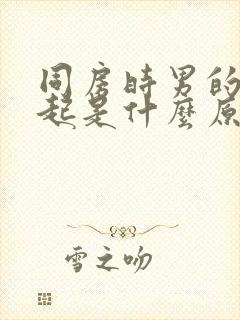 同房時男的
起是什麼原
雪之吻